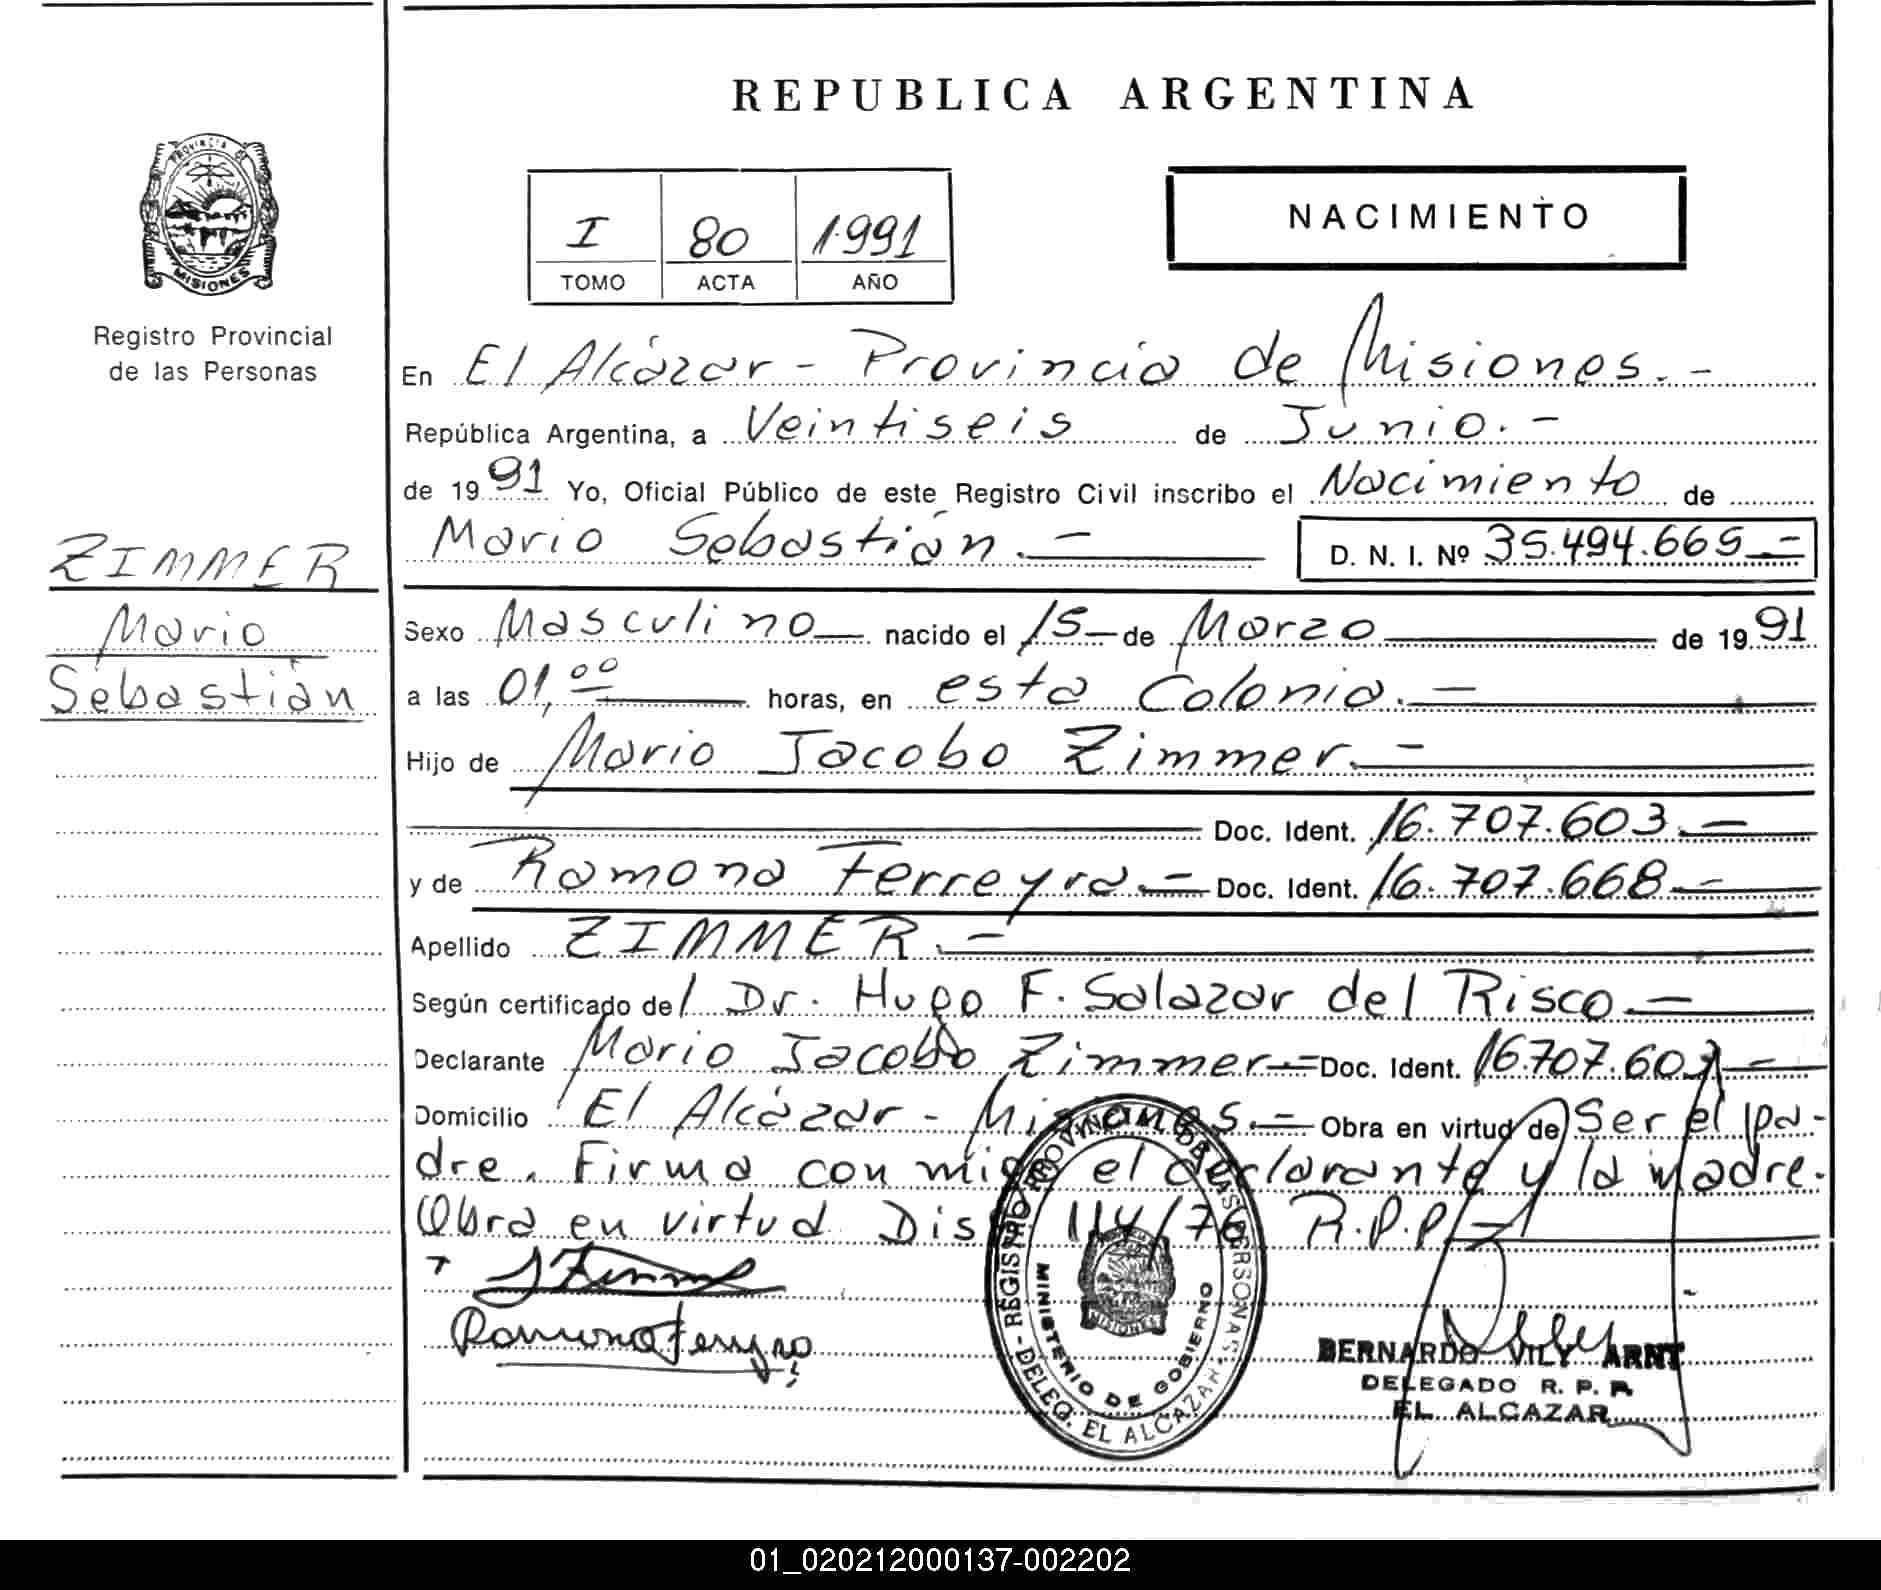 REPUBLICA ARGENTINA
PROVINCIA DE
MISIONES
Registro Provincial
de las Personas
I 80 1991
TOMO ACTA AÑO
NACIMIENTO
En El Alcázar - Provincia de Misiones. -
República Argentina, a Veintiseis de Junio. -
de 1991 Yo, Oficial Público de este Registro Civil inscribo el Nacimiento de
Mario Sebastián. - D. N. I. Nº 35.494.665. -
ZIMMER
Mario
Sebastián
Sexo Masculino nacido el 15 de Marzo de 1991
a las 01,00 horas, en esta Colonia. -
Hijo de Mario Jacobo Zimmer. -
Doc. Ident. 16.707.603. -
y de Ramona Ferreyra. - Doc. Ident. 16.707.668 -
Apellido ZIMMER. -
Según certificado del Dr. Hugo F. Salazar del Risco -
Declarante Mario Jacobo Zimmer - Doc. Ident. 16.707.603 -
Domicilio El Alcázar - Misiones. - Obra en virtud de Ser el pa-
dre. Firma con migo el declarante y la madre.
Obra en virtud Dis 114/76 R.P.P. -
Ramona Ferreyra
REGISTRO PROVINCIAL DE LAS PERSONAS
MINISTERIO DE GOBIERNO
MISIONES
DELEG. EL ALCAZAR
BERNARDO VILY ARNT
DELEGADO R. P. P.
EL ALCAZAR
01_020212000137-002202